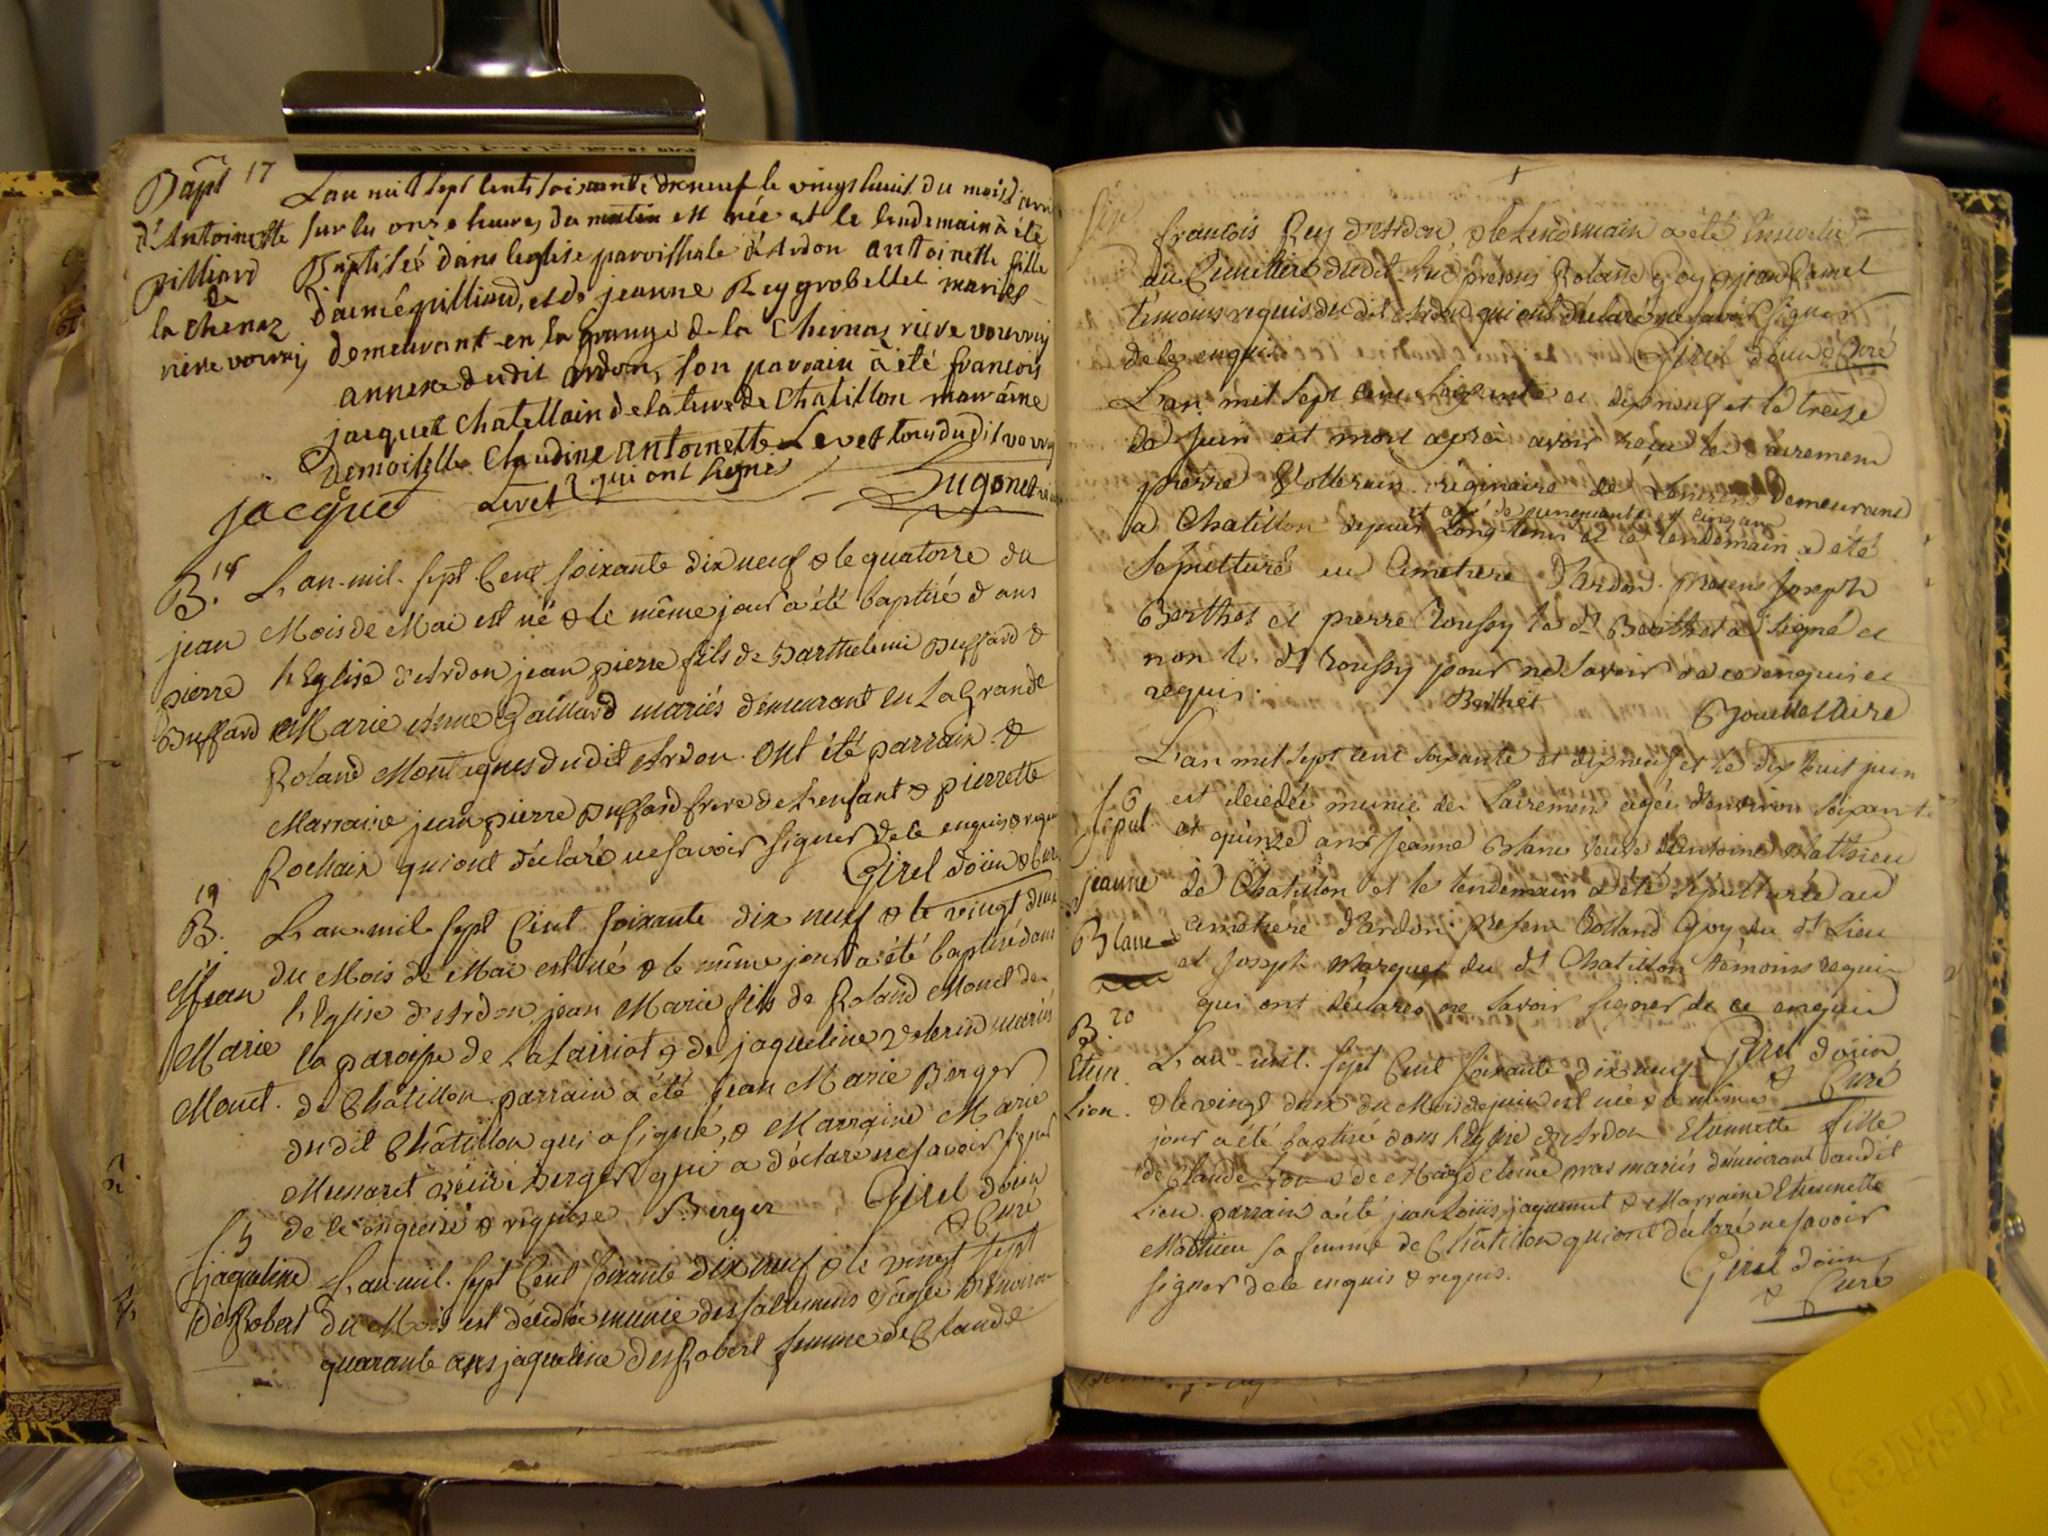 Bapt 17
d'Antoinette
pilliard
de
la chenaz
riere vovrai
L'an mil sept cents soixante dixneuf le vingt huit du mois d'avri
sur les onze heures du matin est née et le lendemain à été
Baptisée dans leglise paroissiale d'Ardon antoinette fille
d'aimé pilliard, et de jeanne Rey grobellet mariés
demeurant en la grange de la Chenaz riere vovray
annexe dudit ardon, son parrain à été francois
jacquet Chatellain de la terre de Chatillon marraine
Demoiselle Claudine antoinette Levet tous du dit vovray
qui ont signé
jacquet Levet Hugonet
B. 18
jean
pierre
Buffard
L'an-mil-sept Cent soixante dix neuf & le quatorze du
Mois de Mai est né & le même jour a été baptisé dans
l'Eglise d'Ardon jean pierre fils de Barthelemi Buffard &
Marie Anne Gaillard mariés demeurant en La Grande
Roland Montagnes dudit Ardon. Ont été parrain &
Marraine jean pierre Buffard frere de l'enfant & pierrette
Rochaix qui ont déclaré ne savoir signer de le enquis & requis
Girel doüin & Curé
19
B.
Jean
Marie
Monet.
L'an-mil-sept Cent soixante dix neuf & le vingt deux
du Mois de Mai est né & le même jour a été baptisé dans
l'Eglise d'Ardon jean Marie fils de Roland Monet de
la paroisse de & de jaqueline Volerin mariés
de Châtillon. parrain a été Jean Marie Berger
dudit Châtillon qui a signé, & Marraine Marie
Mussaret veuve berger qui a déclaré ne savoir signer
de le enquise & requise Berger Girel doüin
& Curé
S 5
jaqueline
DesRobert
L'an-mil-sept Cent soixante dix neuf & le vingt sept
du Mois est décédée munie des sacremens & âgée d'environ
quarante ans jaqueline desRobert femme de Claude
françois Rey d'Ardon, & le Lendemain a été Ensevelie
au Cimetiere dudit lieu présens Roland Goy & jean
témoins requis du dit Ardon qui ont déclaré ne savoir signer
de le enquis Girel doüin & Curé
L'an mil sept cent soixante et dix neuf et le treize
de Juin est mort après avoir reçu les sacremens
pierre Vollerin originaire de demeurant
et agé de cinquante et cinq ans
a Chatillon depuis Long-tems et le lendemain a été
sépulturé au Cimetiere d'Ardon. presens Joseph
Berthet et pierre Roussy le dt Berthet a signé et
non le dt Roussy pour ne savoir de ce enquis et
requis. Berthet
S 6
Sepul.
jeanne
Blanc
L'an mil sept cent soixante et dix neuf et le dix huit juin
est décédée munie des sacremens agée d'environ soixante
et quinze ans Jeanne Blanc veuve d'Antoine Mathieu
de Chatillon et le lendemain a été sépulturée au
cimetiere d'Ardon. presens Rolland Goy du dt Lieu
et Joseph Marquet du dt Chatillon témoins requis
qui ont déclarés ne savoir signer de ce enquis
Girel doüin
& Curé
B. 20
Etien.
Lion.
L'an-mil-sept Cent soixante dix neuf
& le vingt deux du Mois de juin est née & le même
jour a été baptisée dans l'Eglise d'Ardon Etiennette fille
de Claude Lion & de Magdeleine mariés demeurant audit
Lieu. parrain a été jean Loüis jaquemet & Marraine Etiennette
Mathieu sa femme de Châtillon qui ont déclaré ne savoir
signer de le enquis & requis. Girel doüin
& Curé